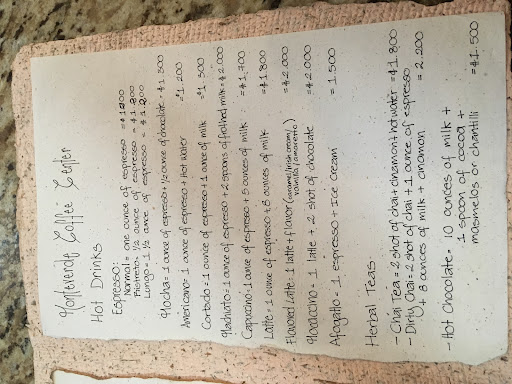 Monteverde Coffee Center
Hot Drinks
Espresso:
Normal = one ounce of espresso = ₡1200
Ristreto = ½ ounce of espresso = ₡1.200
Lungo = 1 ½ ounce of espresso = ₡1.200
Mocha = 1 ounce of espresso + ½ ounce of chocolate = ₡1.300
Americano = 1 ounce of espresso + Hot water = 1.200
Cortado = 1 ounce of espresso + 1 ounce of milk = ₡1.300
Machiato = 1 ounce of espresso + 2 spoons of frothed milk = ₡2.000
Capuccino = 1 ounce of espresso + 5 ounces of milk = ₡1,700
Latte = 1 ounce of espresso + 8 ounces of milk = ₡1800
Flavored Latte = 1 latte + flavor (caramel/irish cream/ = ₡2.000
vainilla/amaretto)
Mocaccino = 1 latte + 2 shot of chocolate = ₡2.000
Afogatto = 1 espresso + Ice Cream = 1.500
Herbal Teas:
- Chai Tea = 2 shot of chai + cinamon + hot water = ₡1.800
- Dirty Chai = 2 shot of chai + 1 ounce of espresso
+ 8 ounces of milk + cinamon = 2.200
- Hot Chocolate = 10 ounces of milk +
1 spoon of cocoa +
masmelos or chantilli = ₡1.500